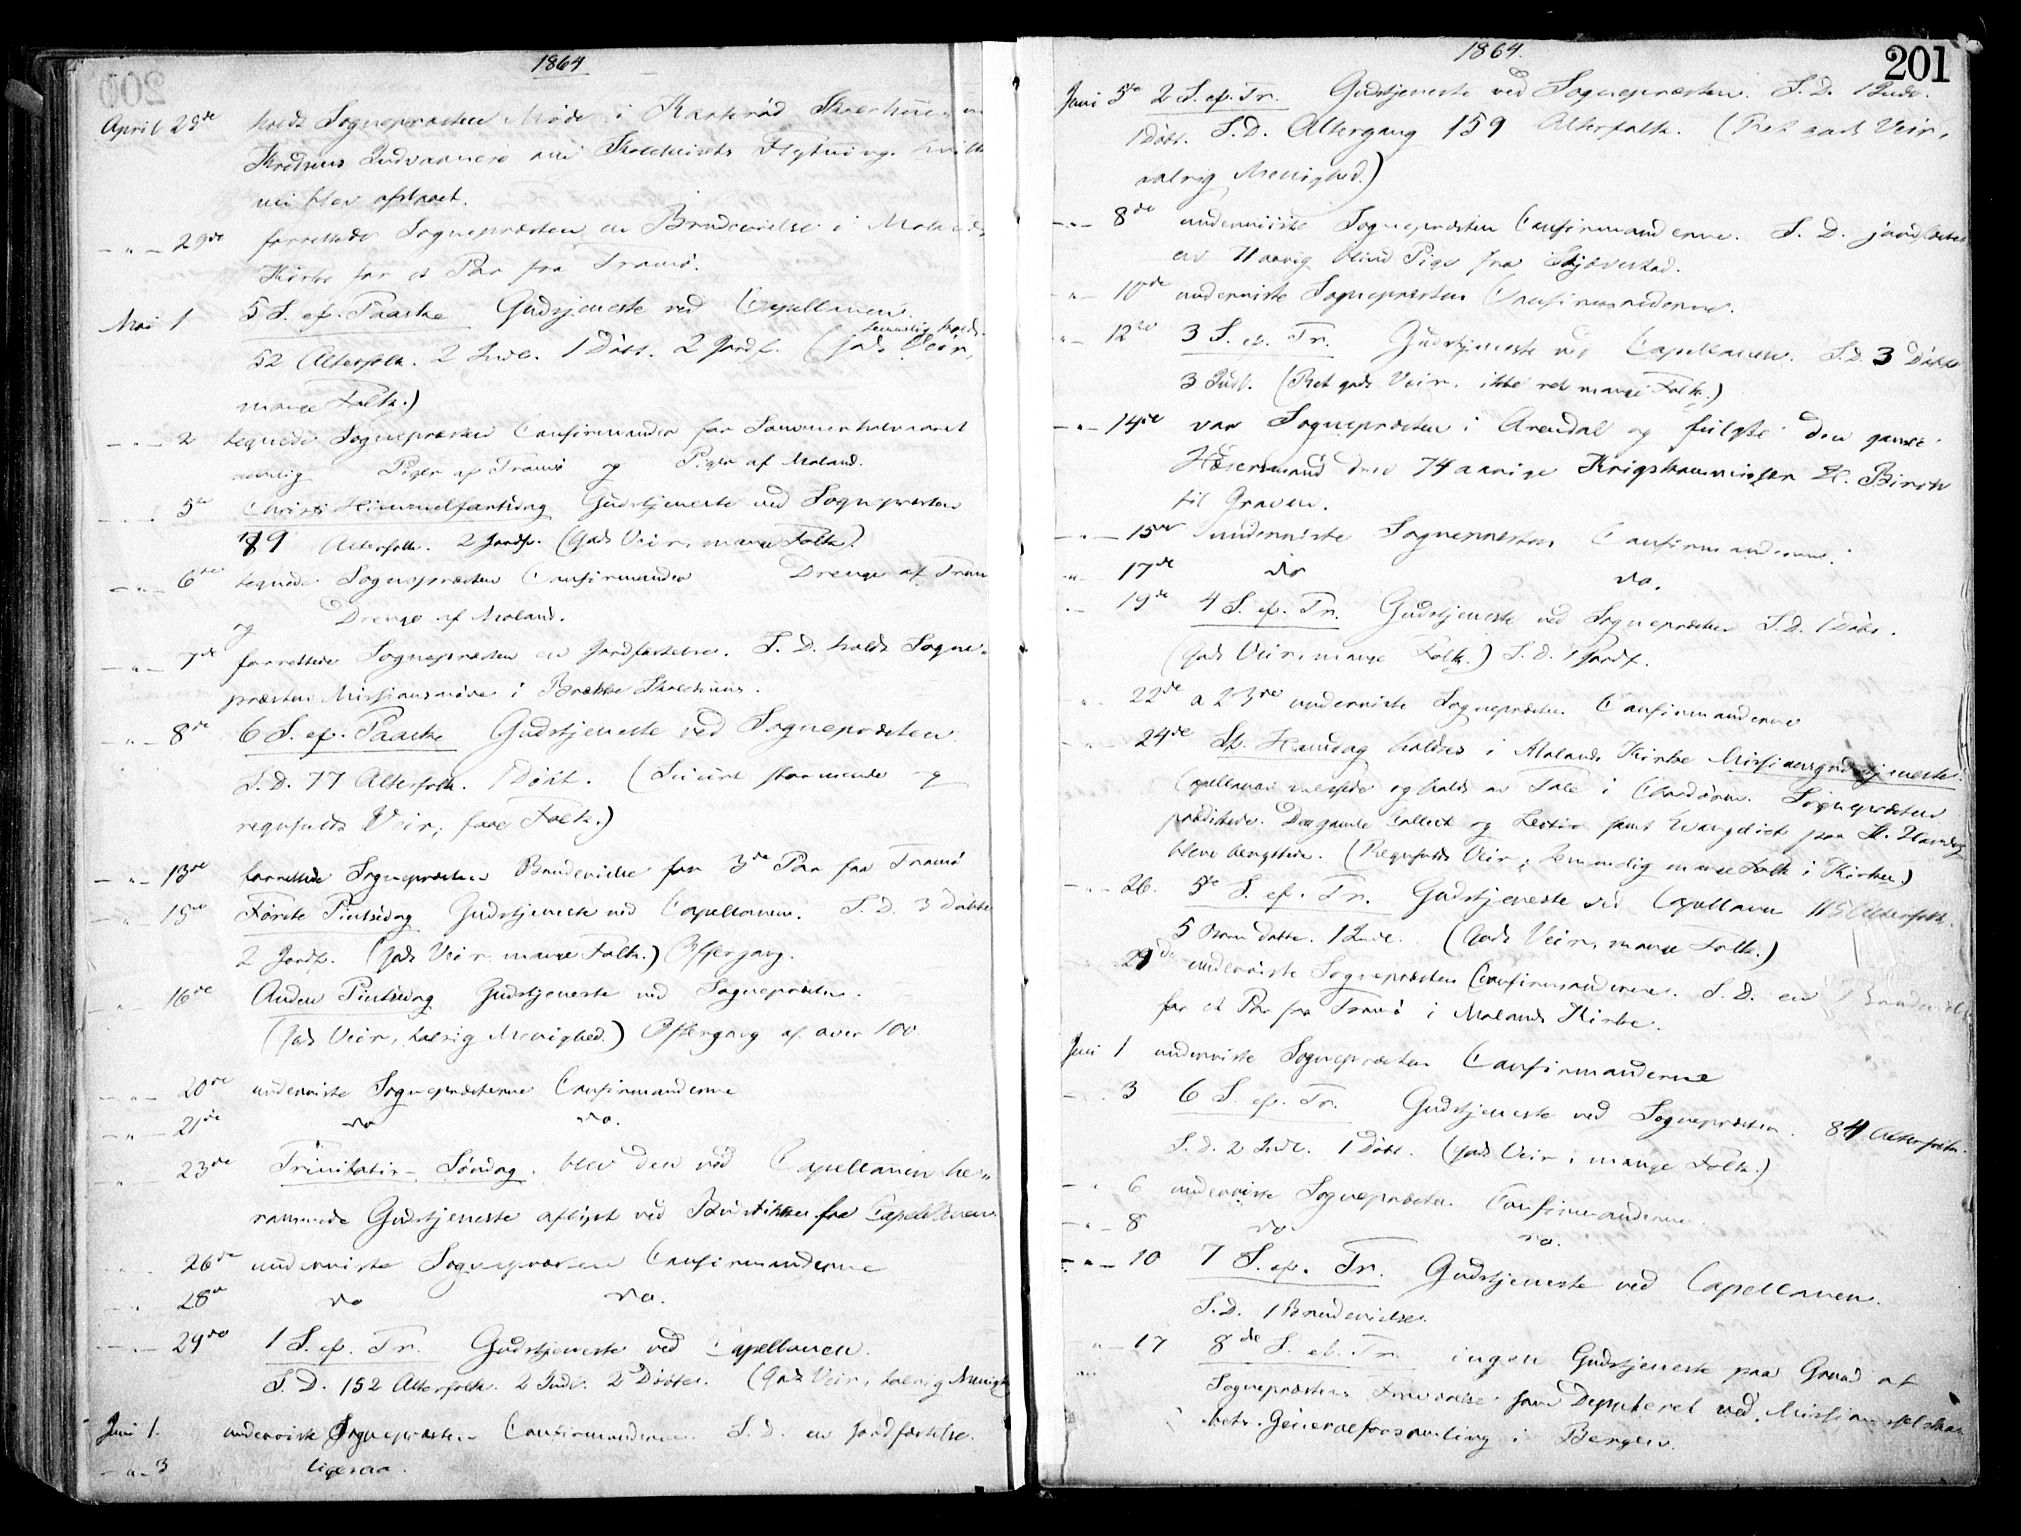 1864
April 25de holdt Sognepræsten Møde i Skolehuus
Kredsens Indvaanere om Skolehusets Flytning, hvilk
nu blev afslaaet.
- " - 29de forrettede Sognepræsten en Brudevielse i Molands
Kirke for et Par fra Tromø.
Mai 1 5 S. ef. Paaske Gudstjeneste ved Capellanen.
52 Alterfolk. 2 Indl. 1 Døbt. 2 Jordf. (godt Veir, temmelig
mange Folk.)
- " - 2 tegnede Sognepræsten Confirmander for Sommerhalvaaret
nemlig Piger af Tromø og Piger af Moland.
- " - 5te Christi Himmelfartsdag Gudstjeneste ved Sognepræsten
Alterfolk. 2 Jordf. (Godt Veir, mange Folk.)
- " - 6te tegnede Sognepræsten Confirmander Drenge af Trom
og Drenge af Moland.
- " - 7de forrettede Sognepræsten en Jordfæstelse. S. D. holdt Sogne-
præsten Missionsmøde i Brække Skolehuus.
- " - 8de 6 S. ef. Paaske Gudstjeneste ved Sognepræsten
S.D. 77 Alterfolk. 1 Døbt. ( stormende og
regnfuldt Veir, faae Folk.)
- " - 13de forrettede Sognepræsten Brudevielse for 3de Par fra Tromø
- " - 15de Første Pintsedag Gudstjeneste ved Capellanen. S. D. 3 Døbte
2 Jordf. (Godt Veir, mange Folk.) Offergang.
- " - 16de Anden Pintsedag Gudstjeneste ved Sognepræsten.
(Godt Veir, talrig Menighed.) Offergang af over 100.
- " - 20de underviste Sognepræsten Confirmanderne
- " - 21de do do.
- " - 23de Trinitatis-Søndag. blev den ved Capellanen be-
rammede Gudstjeneste aflyst ved fra Capellanen
- " - 26de underviste Sognepræsten Confirmanderne
- " - 28de do do.
- " - 29de 1 S. ef. Tr. Gudstjeneste ved Capellanen.
S. D. 152 Alterfolk. 2 Indl. 2 Døbte. (Godt Veir, talrig Menigh
Juni 1. underviste Sognepræsten Confirmanderne. S. D. en Jordfæstelse.
- " - 3 ligesaa.
1864.
201
Juni 5te 2 S. ef. Tr. Gudstjeneste ved Sognepræsten. S. D. 1 Indl.
1 Døbt. S. D. Altergang 159 Alterfolk. (Ret godt Veir,
talrig Menighed.)
- " - 8de underviiste Sognepræsten Confirmanderne. S. D. jordfæstet
en 11 aarig blind Pige fra Skjævestad.
- " - 10de underviste Sognepræsten Confirmanderne.
- " - 12te 3 S. ef. Tr. Gudstjeneste ved Capellanen. S.D. 3 Døbte
3 Indl. (Ret godt Veir, ikke ret mange Folk.)
- " - 14de var Sognepræsten i Arendal og fulgte den gamle
Hædersmand den 74 aarige Krigskommissær H. Birch
til Graven.
- " - 15de underviste Sognepræsten Confirmanderne.
- " - 17de do do.
- " - 19de 4 S. ef. Tr. Gudstjeneste ved Sognepræsten S.D. 1 Døbt.
(Godt Veir, mange Folk.) S. D. 1 Jordf.
" - 22de a 23de underviste Sognepræsten Confirmanderne
" - 24de St. Hansdag holdtes i Molands Kirke Missionsgudstjeneste.
Capellanen messede og holdt en Tale i Chordøren. Sognepræsten
prædikede. Den gamle Collect og Lectie samt Evangeliet paa St. Hansdag
bleve benyttede. (Regnfuldt Veir, temmelig mange Folk i Kirken.)
- " - 26. 5te S. ef. Tr. Gudstjeneste ved Capellanen 115 Alterfolk.
5 Børn døbte. 1 Indl. (Godt Veir, mange Folk.)
29de underviste Sognepræsten Confirmanderne. S. D. en Brudevielse
for et Par fra Tromø i Molands Kirke.
Juli 1 underviste Sognepræsten Confirmanderne
- " - 3 6 S. ef. Tr. Gudstjeneste ved Sognepræsten. 84 Alterfolk.
S. D. 2 Indl. 1 Døbt. (godt Veir, mange Folk.)
- " 6 underviste Sognepræsten Confirmanderne.
- " - 8 do do.
- " - 10 7 S. ef. Tr. Gudstjeneste ved Capellanen.
S. D. 1 Brudevielse.
" - 17 8de S. ef. Tr. ingen Gudstjeneste paa Grund af
Sognepræstens Fraværelse som Deputeret ved Missionsselskab
bets Generalforsamling i Bergen.